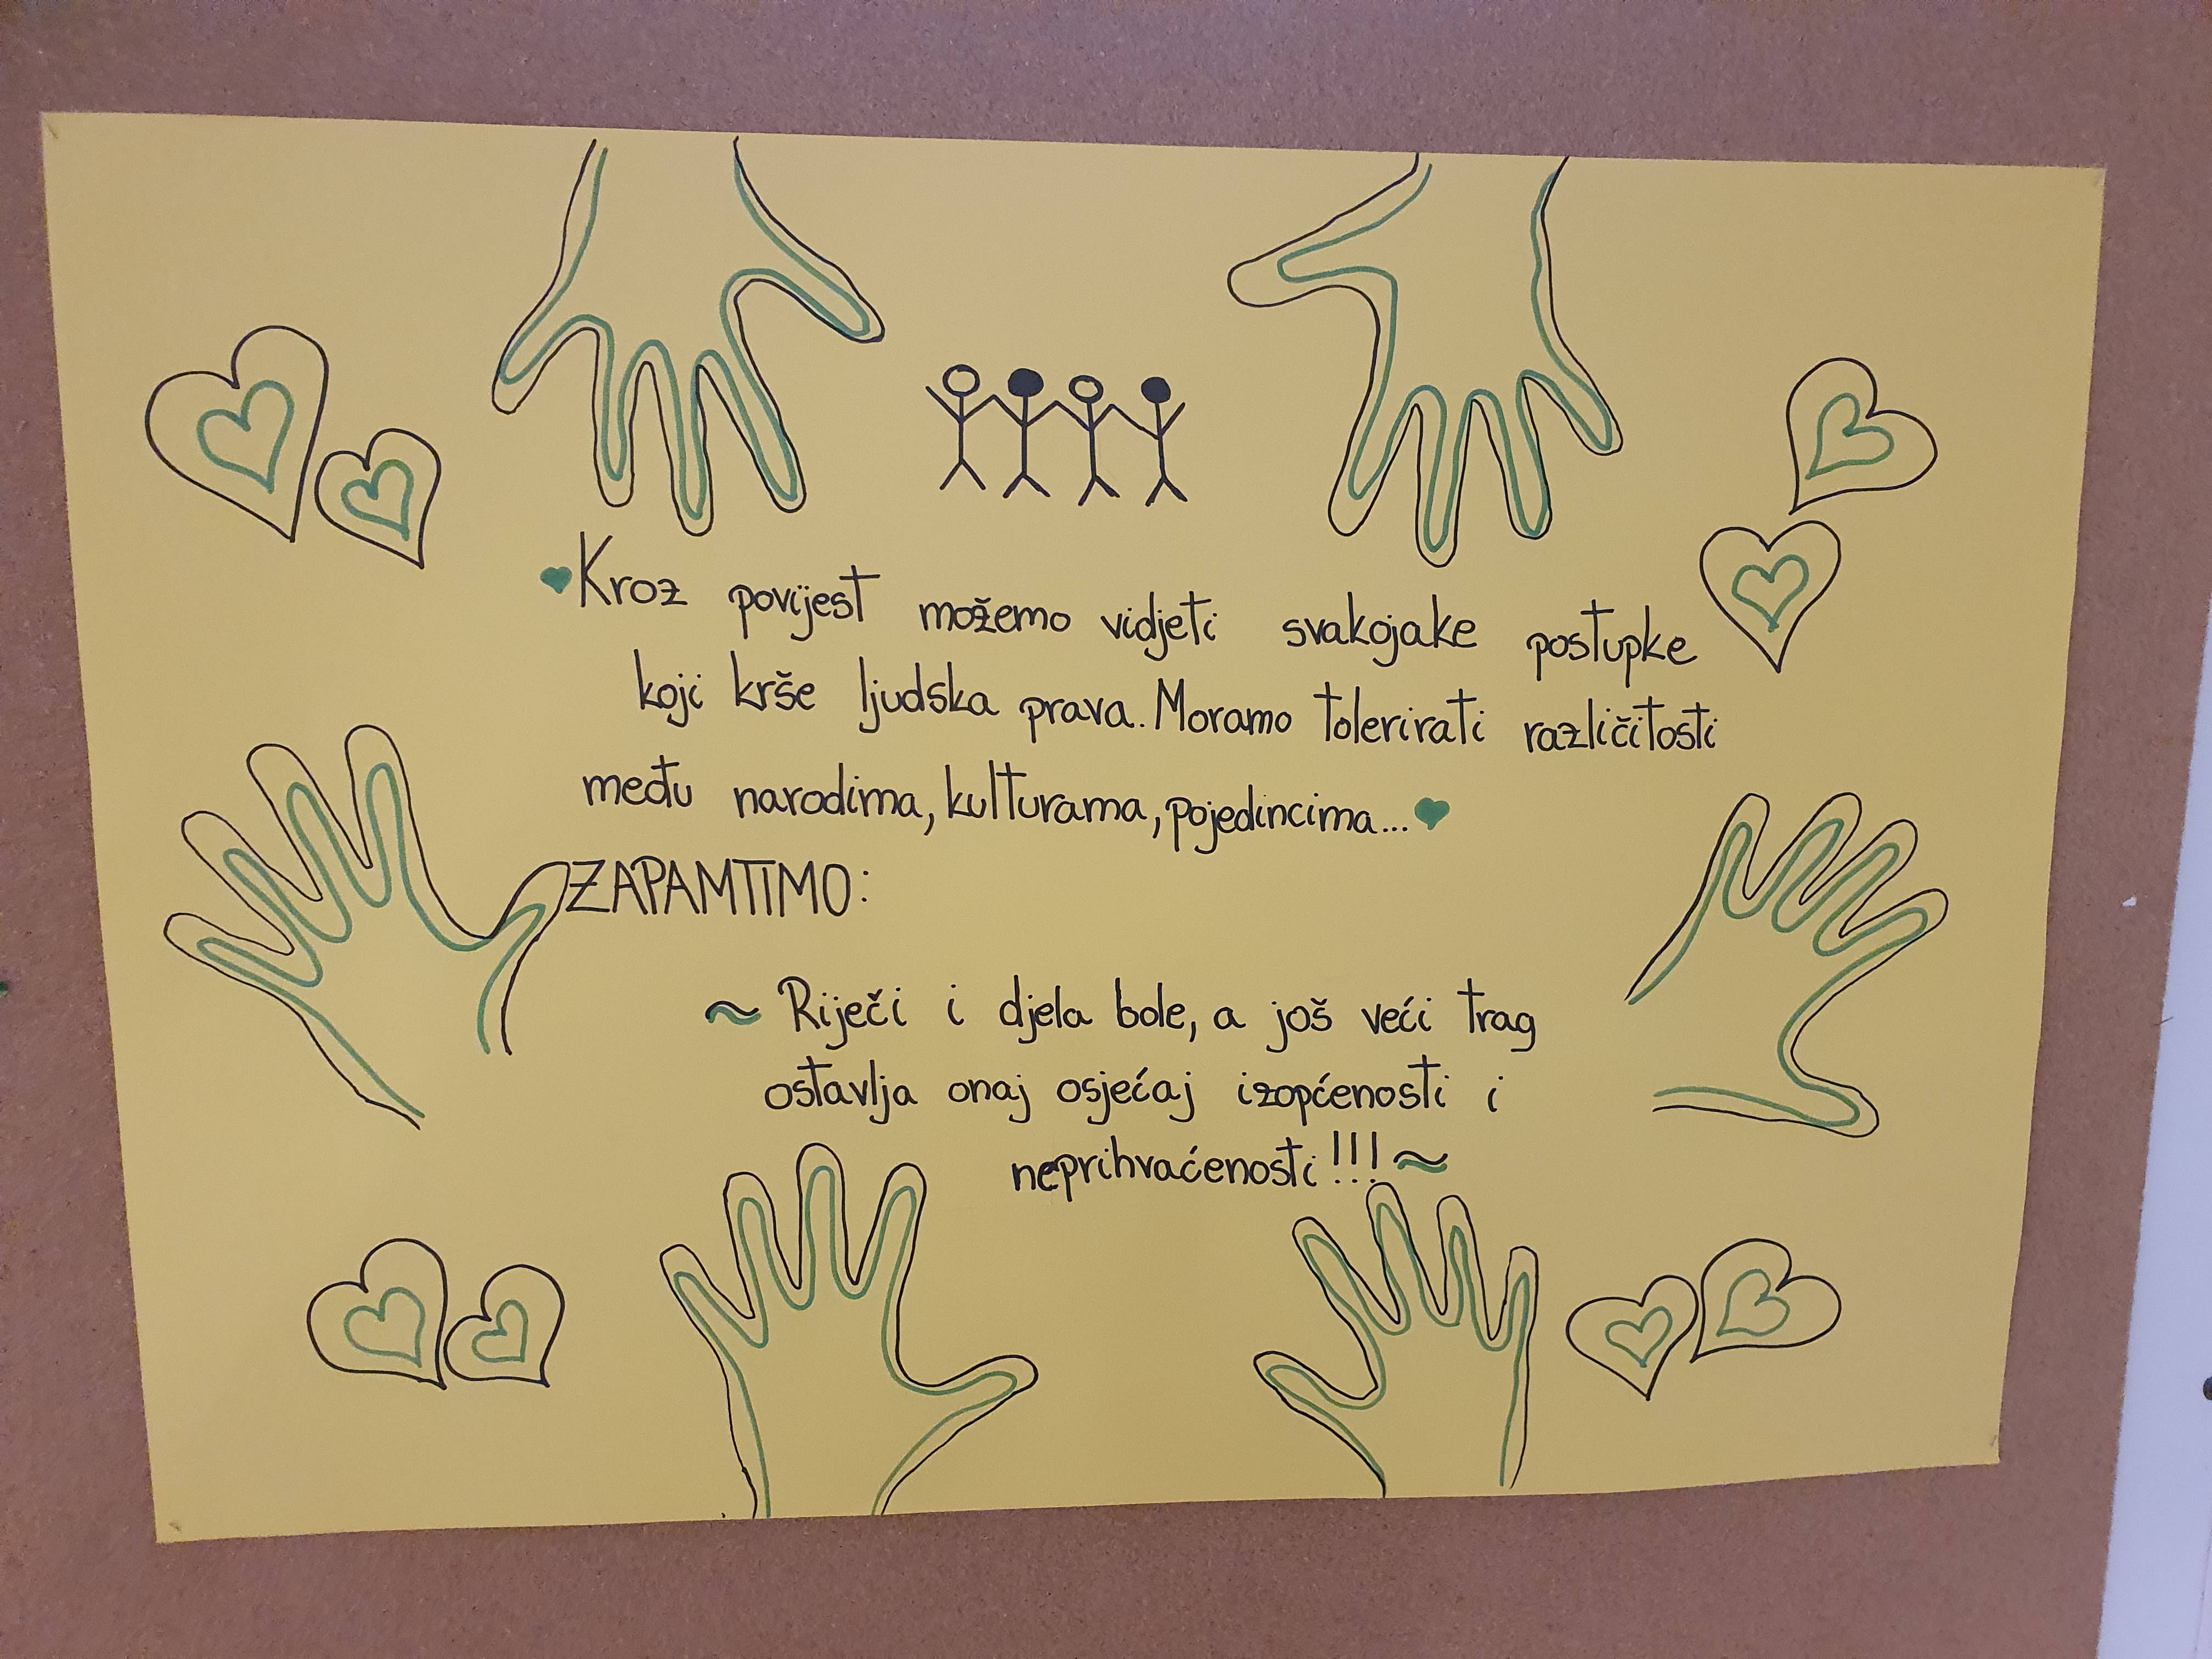 Kroz povijest možemo vidjeti svakojake postupke
koji krše ljudska prava. Moramo tolerirati različitosti
među narodima, kulturama, pojedincima...
ZAPAMTIMO:
~ Riječi i djela bole, a još veći trag
ostavlja onaj osjećaj izopćenosti i
neprihvaćenosti!!! ~